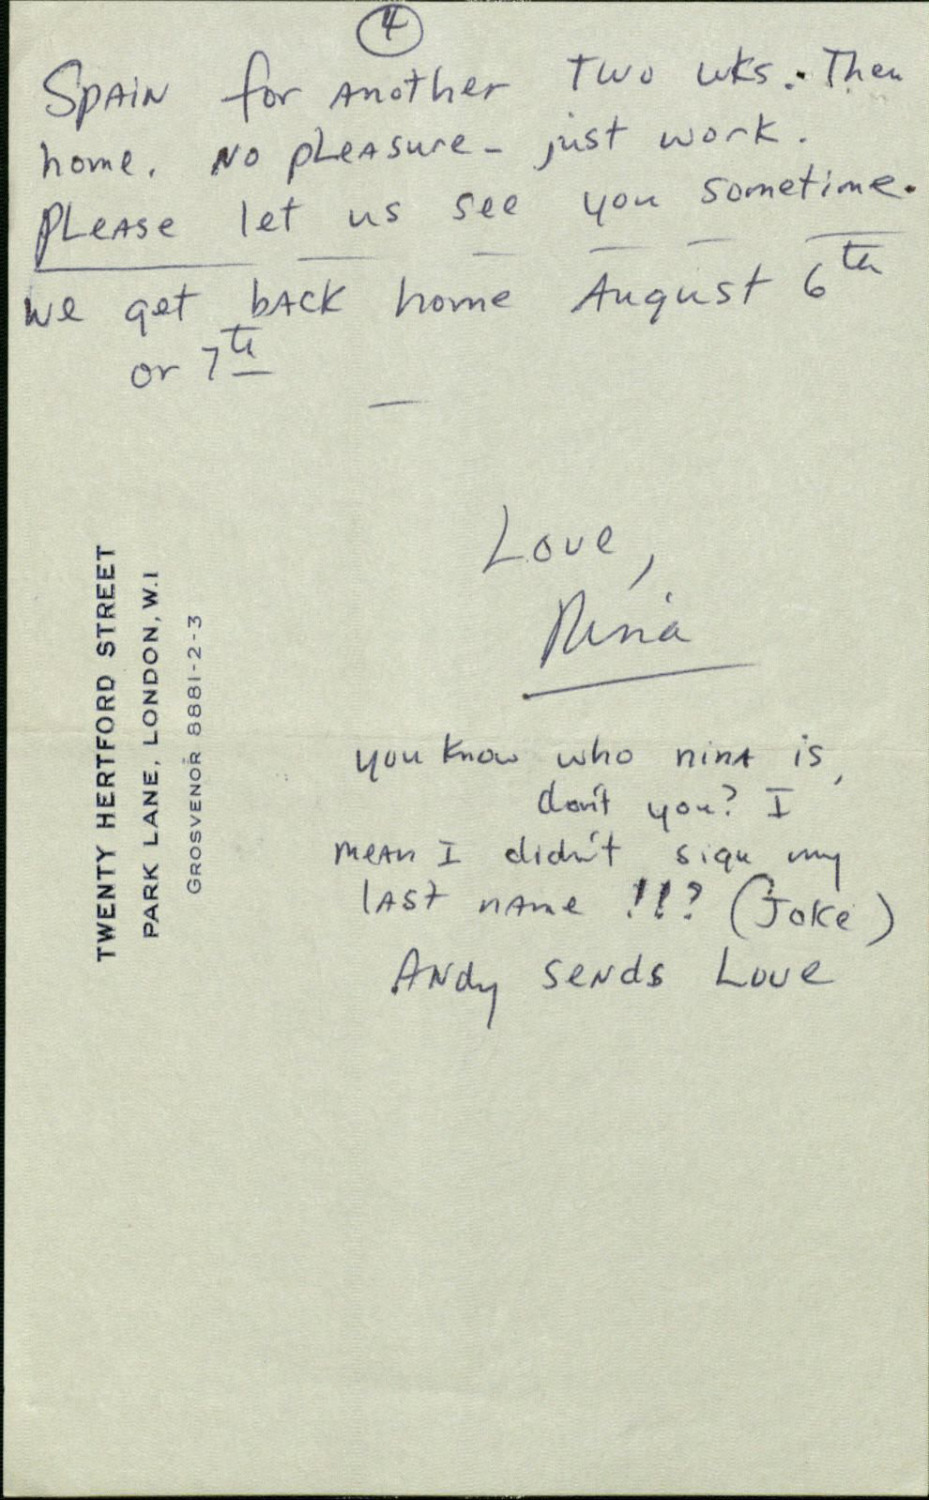 4
Spain for another two wks. Then
home. No pleasure - just work.
Please let us see you sometime.
We get back home August 6th
or 7th
Love,
Nina
you know who nina is,
don't you? I
mean I didn't sign my
last name !!? (Joke)
Andy sends Love
TWENTY HERTFORD STREET
PARK LANE, LONDON, W.1
GROSVENOR 8881-2-3